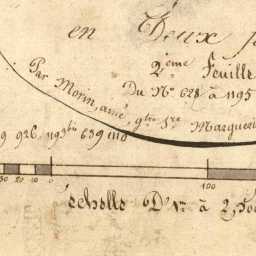 en Deux
2ème Feuille
Du No 628 à 1195
Par Morin, aîné, Ste Marguerit
9 926, 639 1118
20 10 0 100
échelle D' 1 à 2,500